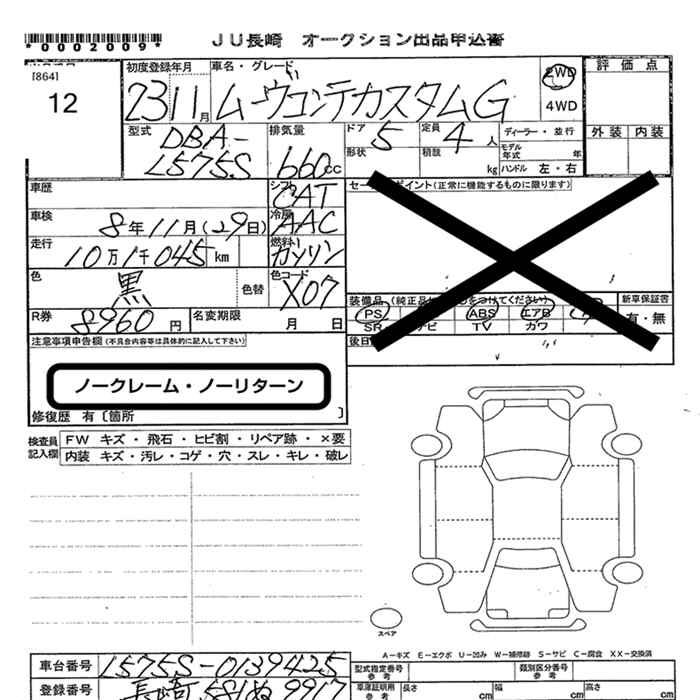 *0002009*
JU長崎 オークション出品申込書
[864]
12
初度登録年月 23 11月
車名・グレード ムーヴコンテカスタムG
2WD
4WD
評価点
外装 内装
型式 DBA-L575S
排気量 660cc
ドア 5
形状
定員 4人
積載 kg
ディーラー・並行
モデル年式 年
ハンドル 左・右
車歴
シフト CAT
車検 8年11月(29日)
冷房 AAC
走行 10万1千045 km
燃料 ガソリン
色 黒 色替
色コード X07
R券 8960円
名変期限 月 日
セールスポイント(正常に機能するものに限ります)
新車保証書
有・無
PS ABS エアB
SR ナビ TV カワ
注意事項申告欄(不具合内容等は具体的に記入して下さい)
ノークレーム・ノーリターン
修復歴 有〔箇所 〕
検査員記入欄
FW キズ・飛石・ヒビ割・リペア跡・×要
内装 キズ・汚レ・コゲ・穴・スレ・キレ・破レ
スペア
A－キズ E－エクボ U－凹み W－補修跡 S－サビ C－腐食 XX－交換済
車台番号 L575S-0139425
登録番号 長崎 581ぬ9917
型式指定番号 参考
類別区分番号 参考
車庫証明用 参考
長さ cm
幅 cm
高さ cm